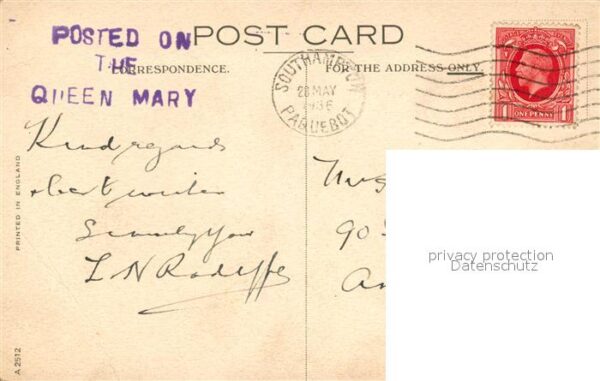 POSTED ON
THE
QUEEN MARY
POST CARD
CORRESPONDENCE.
FOR THE ADDRESS ONLY.
SOUTHAMPTON
28 MAY
1936
PAQUEBOT
1 ONE PENNY 1
Kind regards
& best wishes
Sincerely Your
90
PRINTED IN ENGLAND
A 2512
privacy protection
Datenschutz